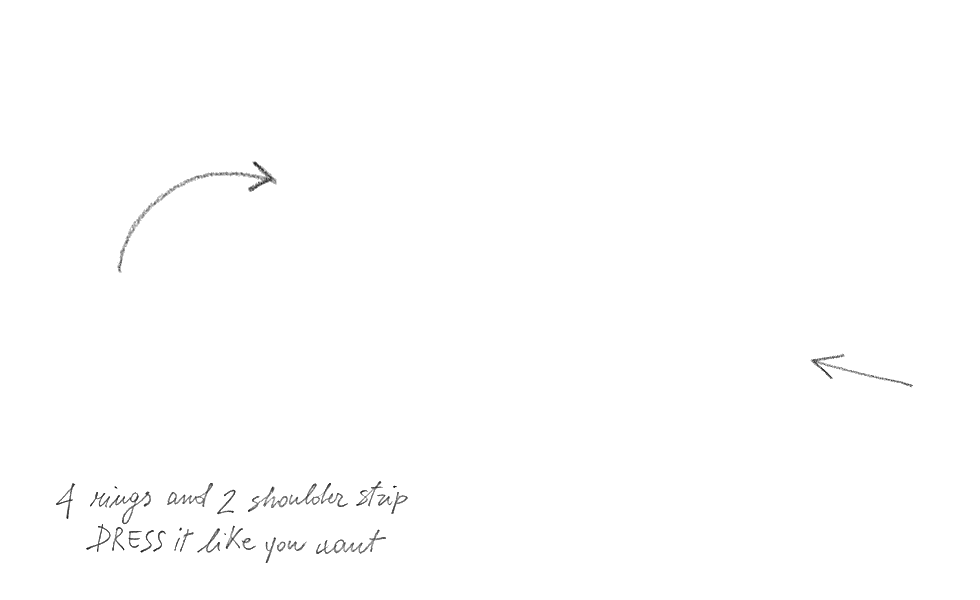 4 rings and 2 shoulder strip
DRESS it like you want